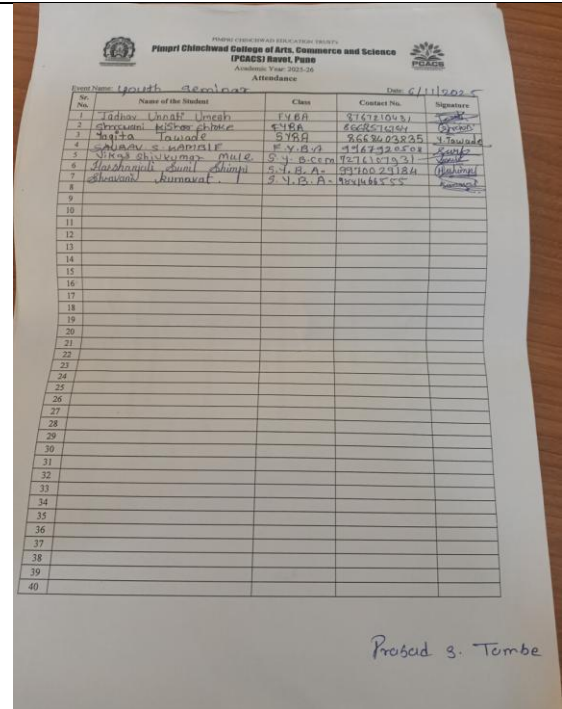 PIMPRI CHINCHWAD EDUCATION TRUST'S
Pimpri Chinchwad College of Arts, Commerce and Science
(PCACS) Ravet, Pune
PCACS
Academic Year: 2025-26
Attendance
Event Name: Youth Seminar Date: 6/11/2025
Sr. No. Name of the Student Class Contact No. Signature
1 Jadhav Unnati Umesh FYBA
2 Shravani Kishor FYBA
3 Yogita Tawade SYBA 8668403835 Y.Tawade
4 GAURAV S. KAMBLE F.Y.B.A
5 Vikas Shivkumar Mule S.Y. B.com
6 Harshanjali Sunil Shimpi S.Y.B.A. 9970029184
7 Shravani Kumavat. S.Y.B.A.
8
9
10
11
12
13
14
15
16
17
18
19
20
21
22
23
24
25
26
27
28
29
30
31
32
33
34
35
36
37
38
39
40
Prasad S. Tambe